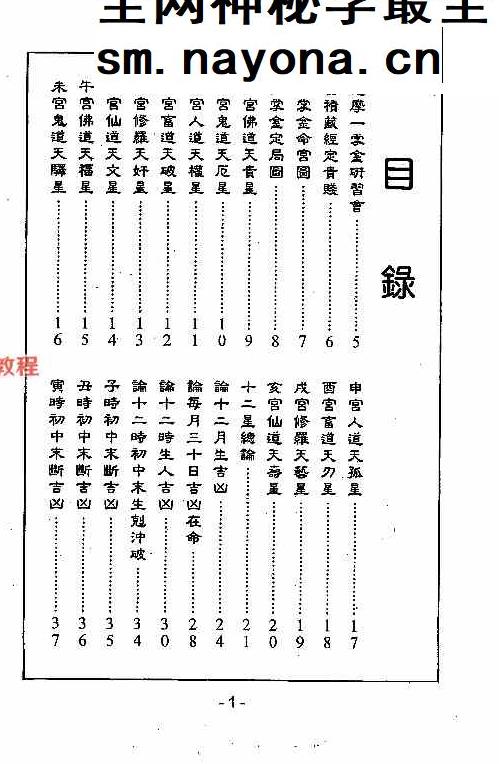 全网神秘学最全
sm.nayona.cn
目錄
摩一掌金研習會 5
積藏經定貴賤 6
掌金命宮圖 7
掌金定局圖 8
宮佛道天貴星 9
宮鬼道天厄星 10
宮人道天權星 11
宮畜道天破星 12
宮修羅天奸星 13
宮仙道天文星 14
午宮佛道天福星 15
未宮鬼道天驛星 16
申宮人道天孤星 17
酉宮畜道天刃星 18
戌宮修羅天藝星 19
亥宮仙道天壽星 20
十二星總論 21
論十二月生吉凶 24
論每月三十日吉凶在命 28
論十二時生人吉凶 30
論十二時初中末生剋沖破 34
子時初中末斷吉凶 35
丑時初中末斷吉凶 36
寅時初中末斷吉凶 37
教程
-1-